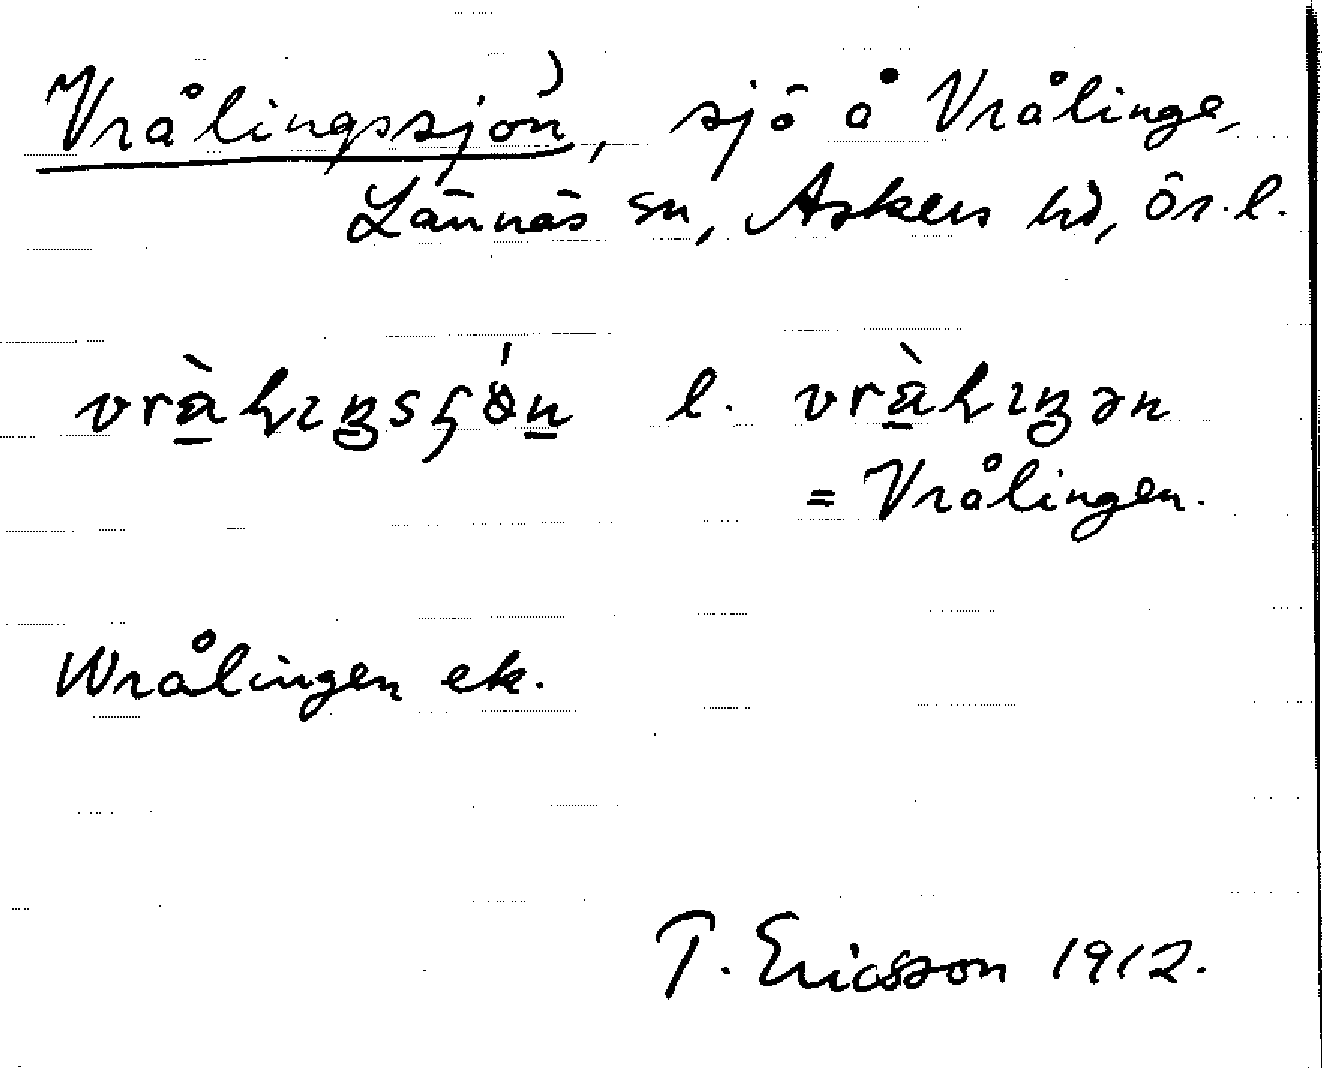 Vrålingssjön), sjö å Vrålinge,
Lännäs sn, Askers hd, Ör. l.
l.
= Vrålingen.
Wrålingen ek.
T. Ericsson 1912.